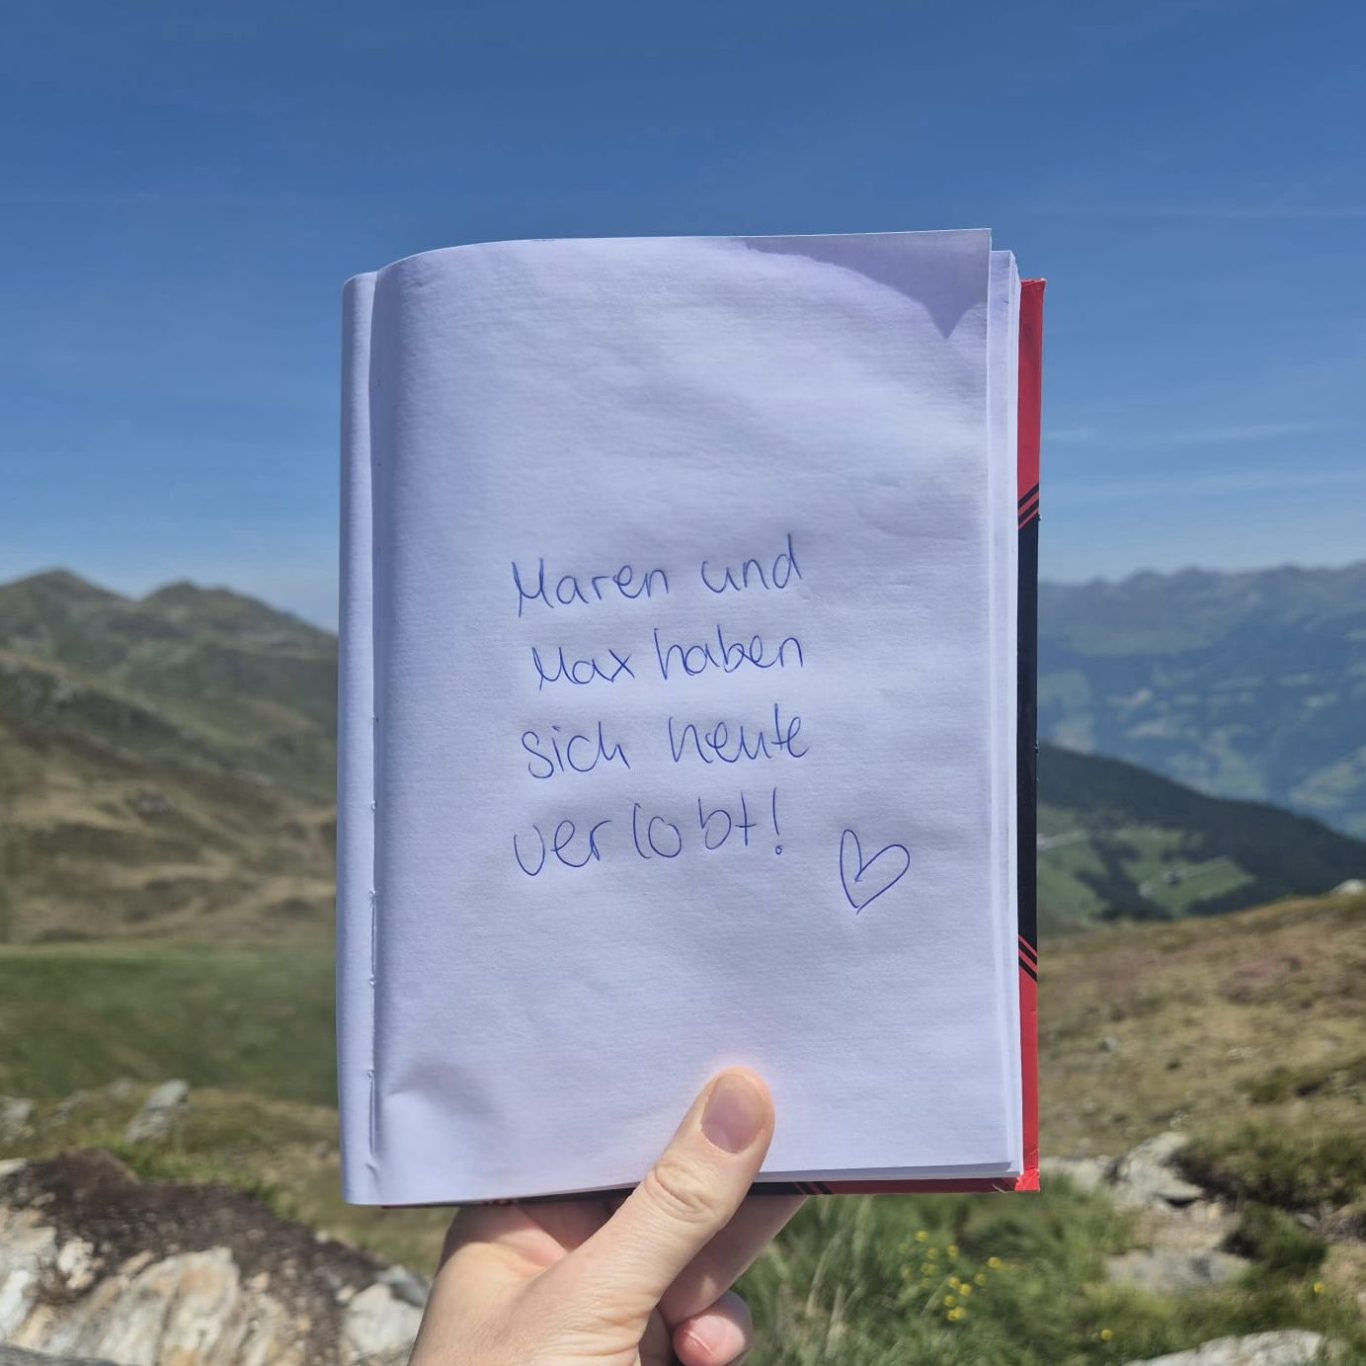 Maren und
Max haben
sich heute
verlobt!